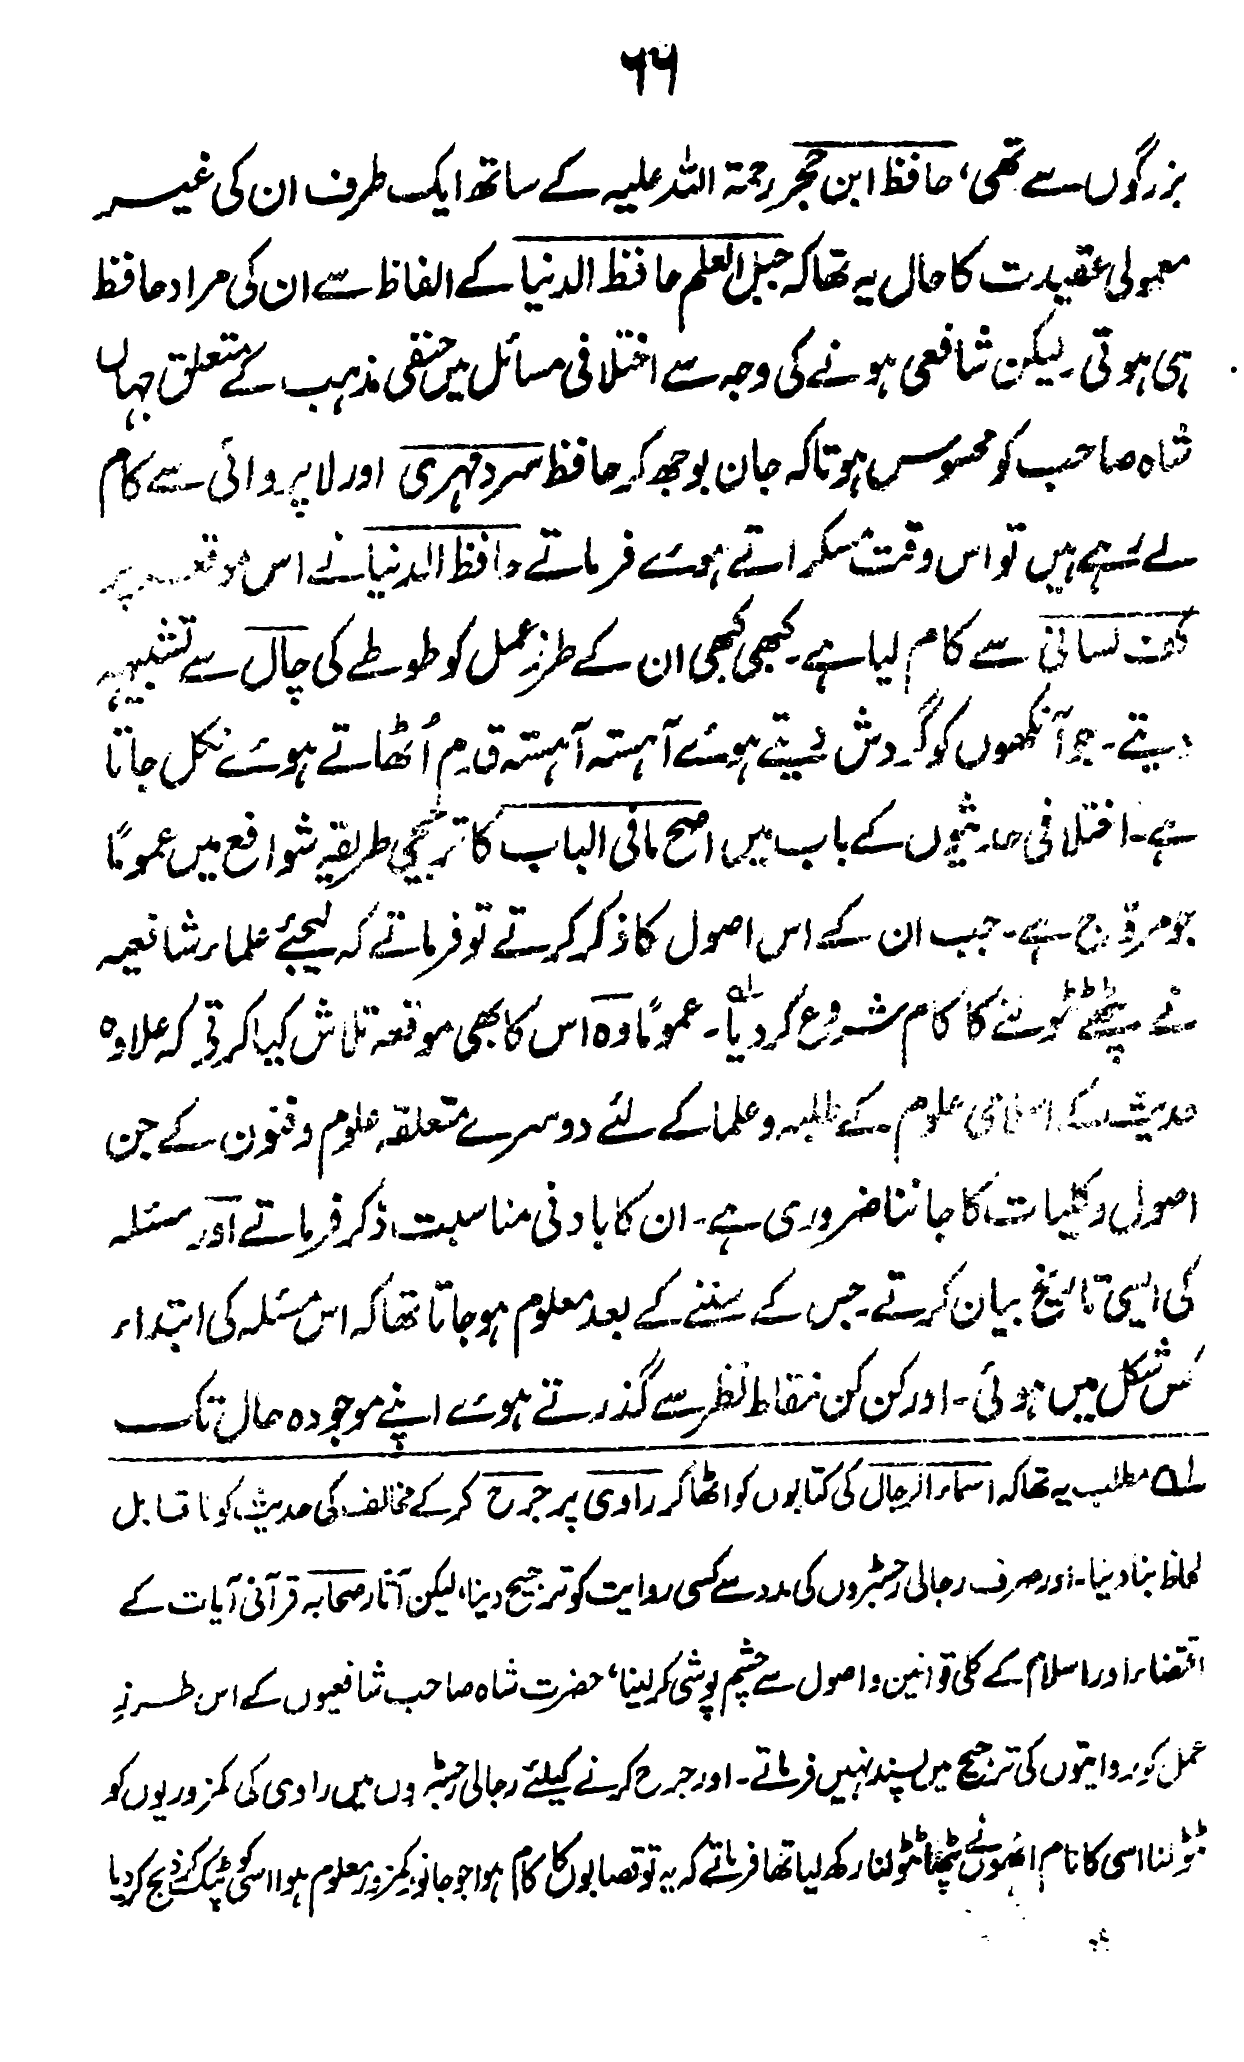 ۶۶
بزرگوں سے تھی، حافظ ابن حجر رحمۃ اللہ علیہ کے ساتھ ایک طرف ان کی غیر
معمولی عقیدت کا حال یہ تھا کہ جبل العلم حافظ الدنیا کے الفاظ سے ان کی مراد حافظ
ہی ہوتی۔ لیکن شافعی ہونے کی وجہ سے اختلافی مسائل میں حنفی مذہب کے متعلق جہاں
شاہ صاحب کو محسوس ہوتا کہ جان بوجھ کر حافظ سرد مہری اور لاپروائی سے کام
لے رہے ہیں تو اس وقت مسکراتے ہوئے فرماتے حافظ الدنیا نے اس موقعہ پر
کف لسانی سے کام لیا ہے۔ کبھی کبھی ان کے طرز عمل کو طوطے کی چال سے تشبیہہ
دیتے۔ جو آنکھوں کو گردش دیتے ہوئے آہستہ آہستہ قدم اُٹھاتے ہوئے نکل جاتا
ہے۔ اختلافی حدیثوں کے باب میں اصح مافی الباب کا ترجیحی طریقہ شوافع میں عموماً
جو مروّج ہے۔ جب ان کے اس اصول کا ذکر کرتے تو فرماتے کہ لیجئے علماء شافعیہ
نے پٹھے ٹٹولنے کا کام شروع کر دیا۱؎۔ عموماً وہ اس کا بھی موقعہ تلاش کیا کرتے کہ علاوہ
حدیث کے اسلامی علوم کے طلبہ و علما کے لئے دوسرے متعلقہ علوم و فنون کے جن
اصول و کلیات کا جاننا ضروری ہے۔ ان کا بادنیٰ مناسبت ذکر فرماتے اور مسئلہ
کی ایسی تاریخ بیان کرتے۔ جس کے سننے کے بعد معلوم ہو جاتا تھا کہ اس مسئلہ کی ابتداء
کس شکل میں ہوئی۔ اور کن کن نقاط نظر سے گذرتے ہوئے اپنے موجودہ حال تک
۱؎ مطلب یہ تھا کہ اسماء الرجال کی کتابوں کو اٹھا کر راوی پر جرح کر کے مخالف کی حدیث کو نا قابل
لحاظ بنا دینا۔ اور صرف رجالی رجسٹروں کی مدد سے کسی روایت کو ترجیح دینا، لیکن آثار صحابہ قرآنی آیات کے
اقتضاء اور اسلام کے کلی قوانین و اصول سے چشم پوشی کر لینا، حضرت شاہ صاحب شافعیوں کے اس طرز
عمل کو روایتوں کی ترجیح میں پسند نہیں فرماتے۔ اور جرح کرنے کیلئے رجالی رجسٹروں میں راوی کی کمزوریوں کو
ٹٹولنا اسی کا نام انھوں نے پٹھا ٹٹولنا رکھ لیا تھا فرماتے کہ یہ تو قصابوں کا کام ہوا جو جانور کمزور معلوم ہوا اسی کو پٹک کر ذبح کر دیا